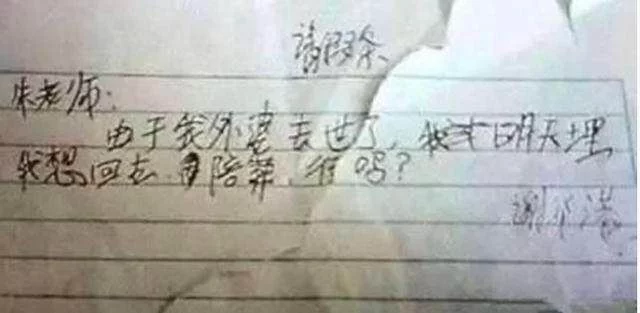 请假条
朱老师：
由于我外婆去世了，明天埋
我想回去陪葬，行吗？